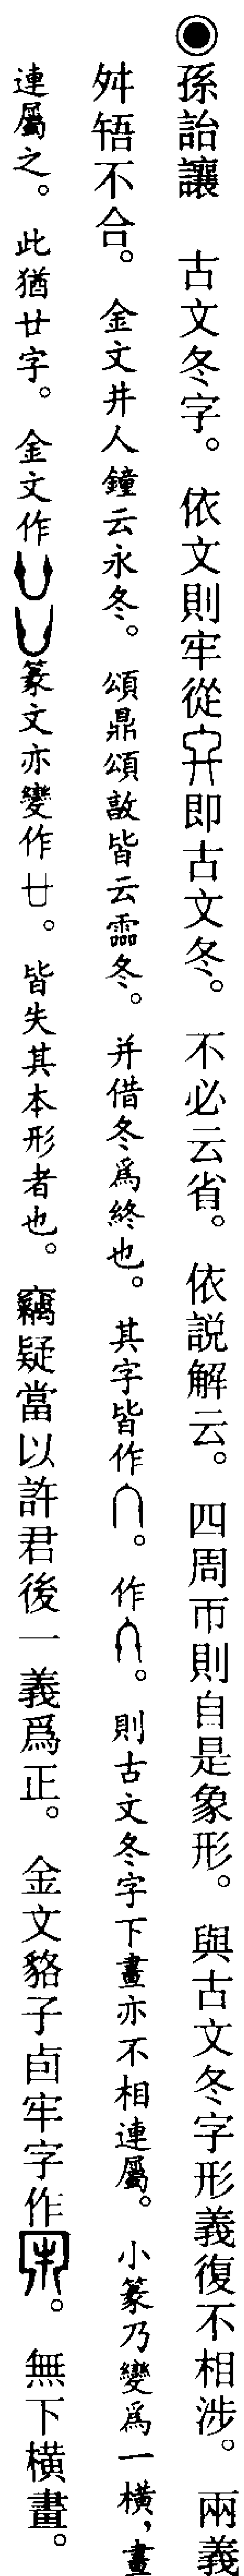 ◉孫詒讓 古文冬字。依文則牢從即古文冬。不必云省。依說解云。四周帀則自是象形。與古文冬字形義復不相涉。兩義
舛啎不合。金文井人鐘云永冬。頌鼎頌敦皆云霝冬。并借冬爲終也。其字皆作。作。則古文冬字下畫亦不相連屬。小篆乃變爲一橫，畫
連屬之。此猶廿字。金文作篆文亦變作廿。皆失其本形者也。竊疑當以許君後一義爲正。金文貉子卣牢字作。無下橫畫。